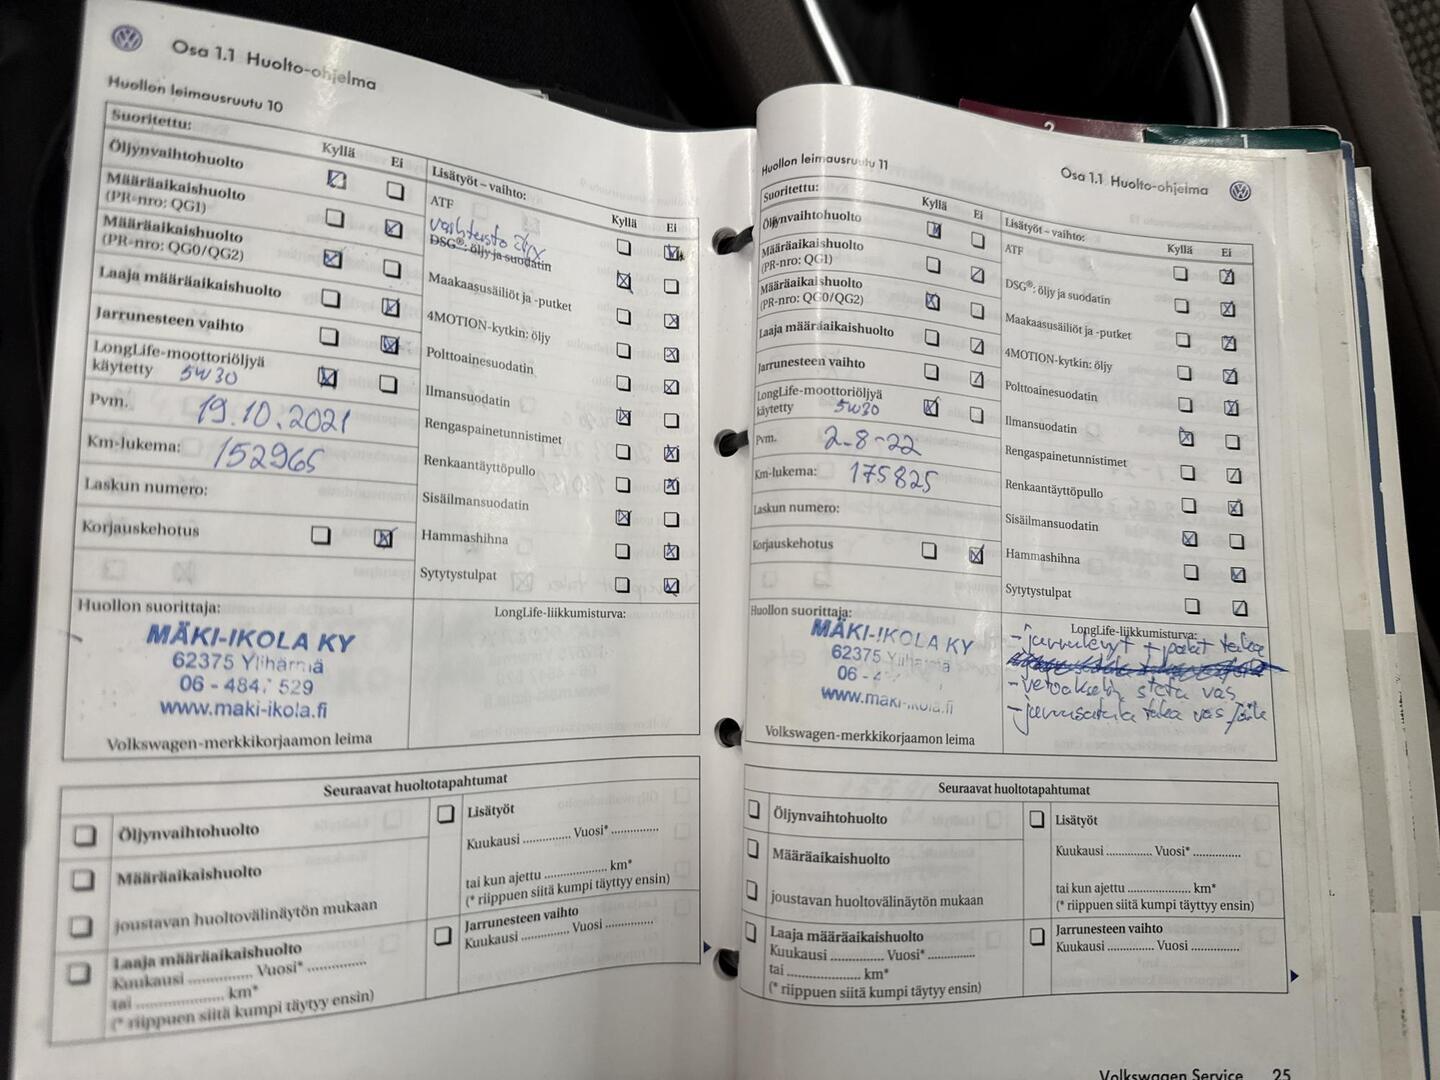 Osa 1.1 Huolto-ohjelma
Huollon leimausruutu 10
Suoritettu:
Kyllä Ei
Öljynvaihtohuolto
Määräaikaishuolto
(PR-nro: QG1)
Määräaikaishuolto
(PR-nro: QG0/QG2)
Laaja määräaikaishuolto
Jarrunesteen vaihto
LongLife-moottoriöljyä
käytetty 5W30
Pvm. 19.10.2021
Km-lukema: 152965
Laskun numero:
Korjauskehotus
Lisätyöt – vaihto:
Kyllä Ei
ATF
DSG®: öljy ja suodatin
Maakaasusäiliöt ja -putket
4MOTION-kytkin: öljy
Polttoainesuodatin
Ilmansuodatin
Rengaspainetunnistimet
Renkaantäyttöpullo
Sisäilmansuodatin
Hammashihna
Sytytystulpat
Huollon suorittaja:
MÄKI-IKOLA KY
62375 Ylihärmä
06 - 484 529
www.maki-ikola.fi
Volkswagen-merkkikorjaamon leima
LongLife-liikkumisturva:
Seuraavat huoltotapahtumat
Öljynvaihtohuolto
Määräaikaishuolto
joustavan huoltovälinäytön mukaan
Laaja määräaikaishuolto
Kuukausi .............. Vuosi* ..............
tai ..................... km*
(* riippuen siitä kumpi täytyy ensin)
Lisätyöt
Kuukausi ............ Vuosi* ..............
tai kun ajettu .................. km*
(* riippuen siitä kumpi täyttyy ensin)
Jarrunesteen vaihto
Kuukausi ............ Vuosi ..............
2
1
Huollon leimausruutu 11
Osa 1.1 Huolto-ohjelma
Suoritettu:
Kyllä Ei
Öljynvaihtohuolto
Määräaikaishuolto
(PR-nro: QG1)
Määräaikaishuolto
(PR-nro: QG0/QG2)
Laaja määräaikaishuolto
Jarrunesteen vaihto
LongLife-moottoriöljyä
käytetty 5W30
Pvm. 2-8-22
Km-lukema: 175825
Laskun numero:
Korjauskehotus
Lisätyöt – vaihto:
Kyllä Ei
ATF
DSG®: öljy ja suodatin
Maakaasusäiliöt ja -putket
4MOTION-kytkin: öljy
Polttoainesuodatin
Ilmansuodatin
Rengaspainetunnistimet
Renkaantäyttöpullo
Sisäilmansuodatin
Hammashihna
Sytytystulpat
Huollon suorittaja:
MÄKI-IKOLA KY
62375 Ylihärmä
06 -
www.maki-ikola.fi
Volkswagen-merkkikorjaamon leima
LongLife-liikkumisturva:
- jarrulevyt + palat taka
- vetoakselin vas
- jarrusatula taka vas
Seuraavat huoltotapahtumat
Öljynvaihtohuolto
Määräaikaishuolto
joustavan huoltovälinäytön mukaan
Laaja määräaikaishuolto
Kuukausi .............. Vuosi* ..............
tai ..................... km*
(* riippuen siitä kumpi täytyy ensin)
Lisätyöt
Kuukausi ............ Vuosi* ..............
tai kun ajettu .................. km*
(* riippuen siitä kumpi täyttyy ensin)
Jarrunesteen vaihto
Kuukausi ............ Vuosi ..............
Volkswagen Service 25